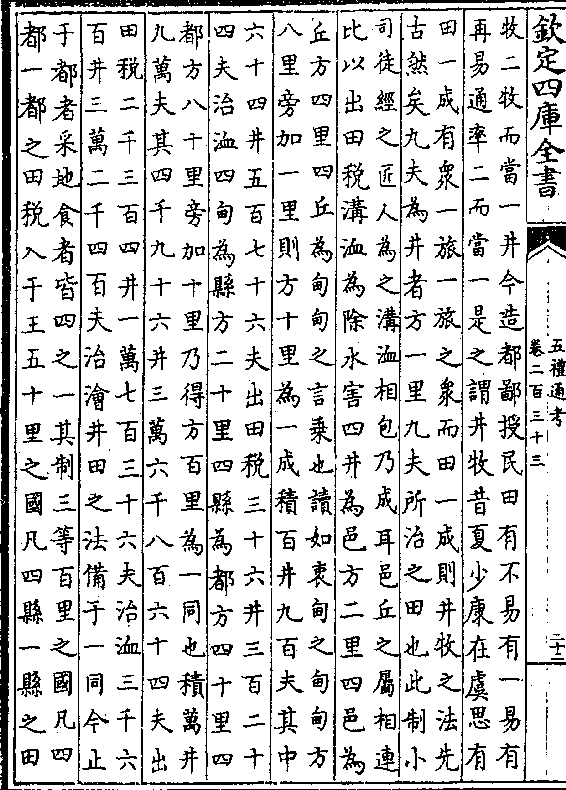 欽定四庫全書
五禮通考
卷二百三十三
二十二
牧二牧而當一井今造都鄙授民田有不易有一易有
再易通率二而當一是之謂井牧昔夏少康在虞思有
田一成有衆一旅一旅之衆而田一成則井牧之法先
古然矣九夫為井者方一里九夫所治之田也此制小
司徒經之匠人為之溝洫相包乃成耳邑丘之屬相連
比以出田税溝洫為除水害四井為邑方二里四邑為
丘方四里四丘為甸甸之言乗也讀如衷甸之甸甸方
八里旁加一里則方十里為一成積百井九百夫其中
六十四井五百七十六夫出田税三十六井三百二十
四夫治洫四甸為縣方二十里四縣為都方四十里四
都方八十里旁加十里乃得方百里為一同也積萬井
九萬夫其四千九十六井三萬六千八百六十四夫出
田税二千三百四井一萬七百三十六夫治洫三千六
百井三萬二千四百夫治澮井田之法備于一同今止
于都者采地食者皆四之一其制三等百里之國凡四
都一都之田税入于王五十里之國凡四縣一縣之田